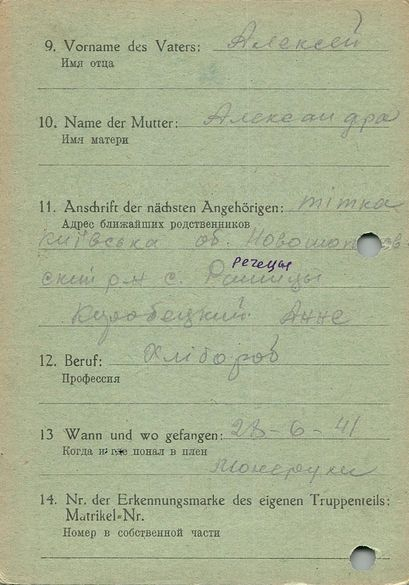 9. Vorname des Vaters: Алексей
Имя отца
10. Name der Mutter: Александра
Имя матери
11. Anschrift der nächsten Angehörigen: тітка
Адрес ближайших родственников
Київська об.
Речецы
ский р-н с.
Анне
12. Beruf: Хлібороб
Профессия
13 Wann und wo gefangen: 28-6-41
Когда и где попал в плен
14. Nr. der Erkennungsmarke des eigenen Truppenteils:
Matrikel-Nr.
Номер в собственной части